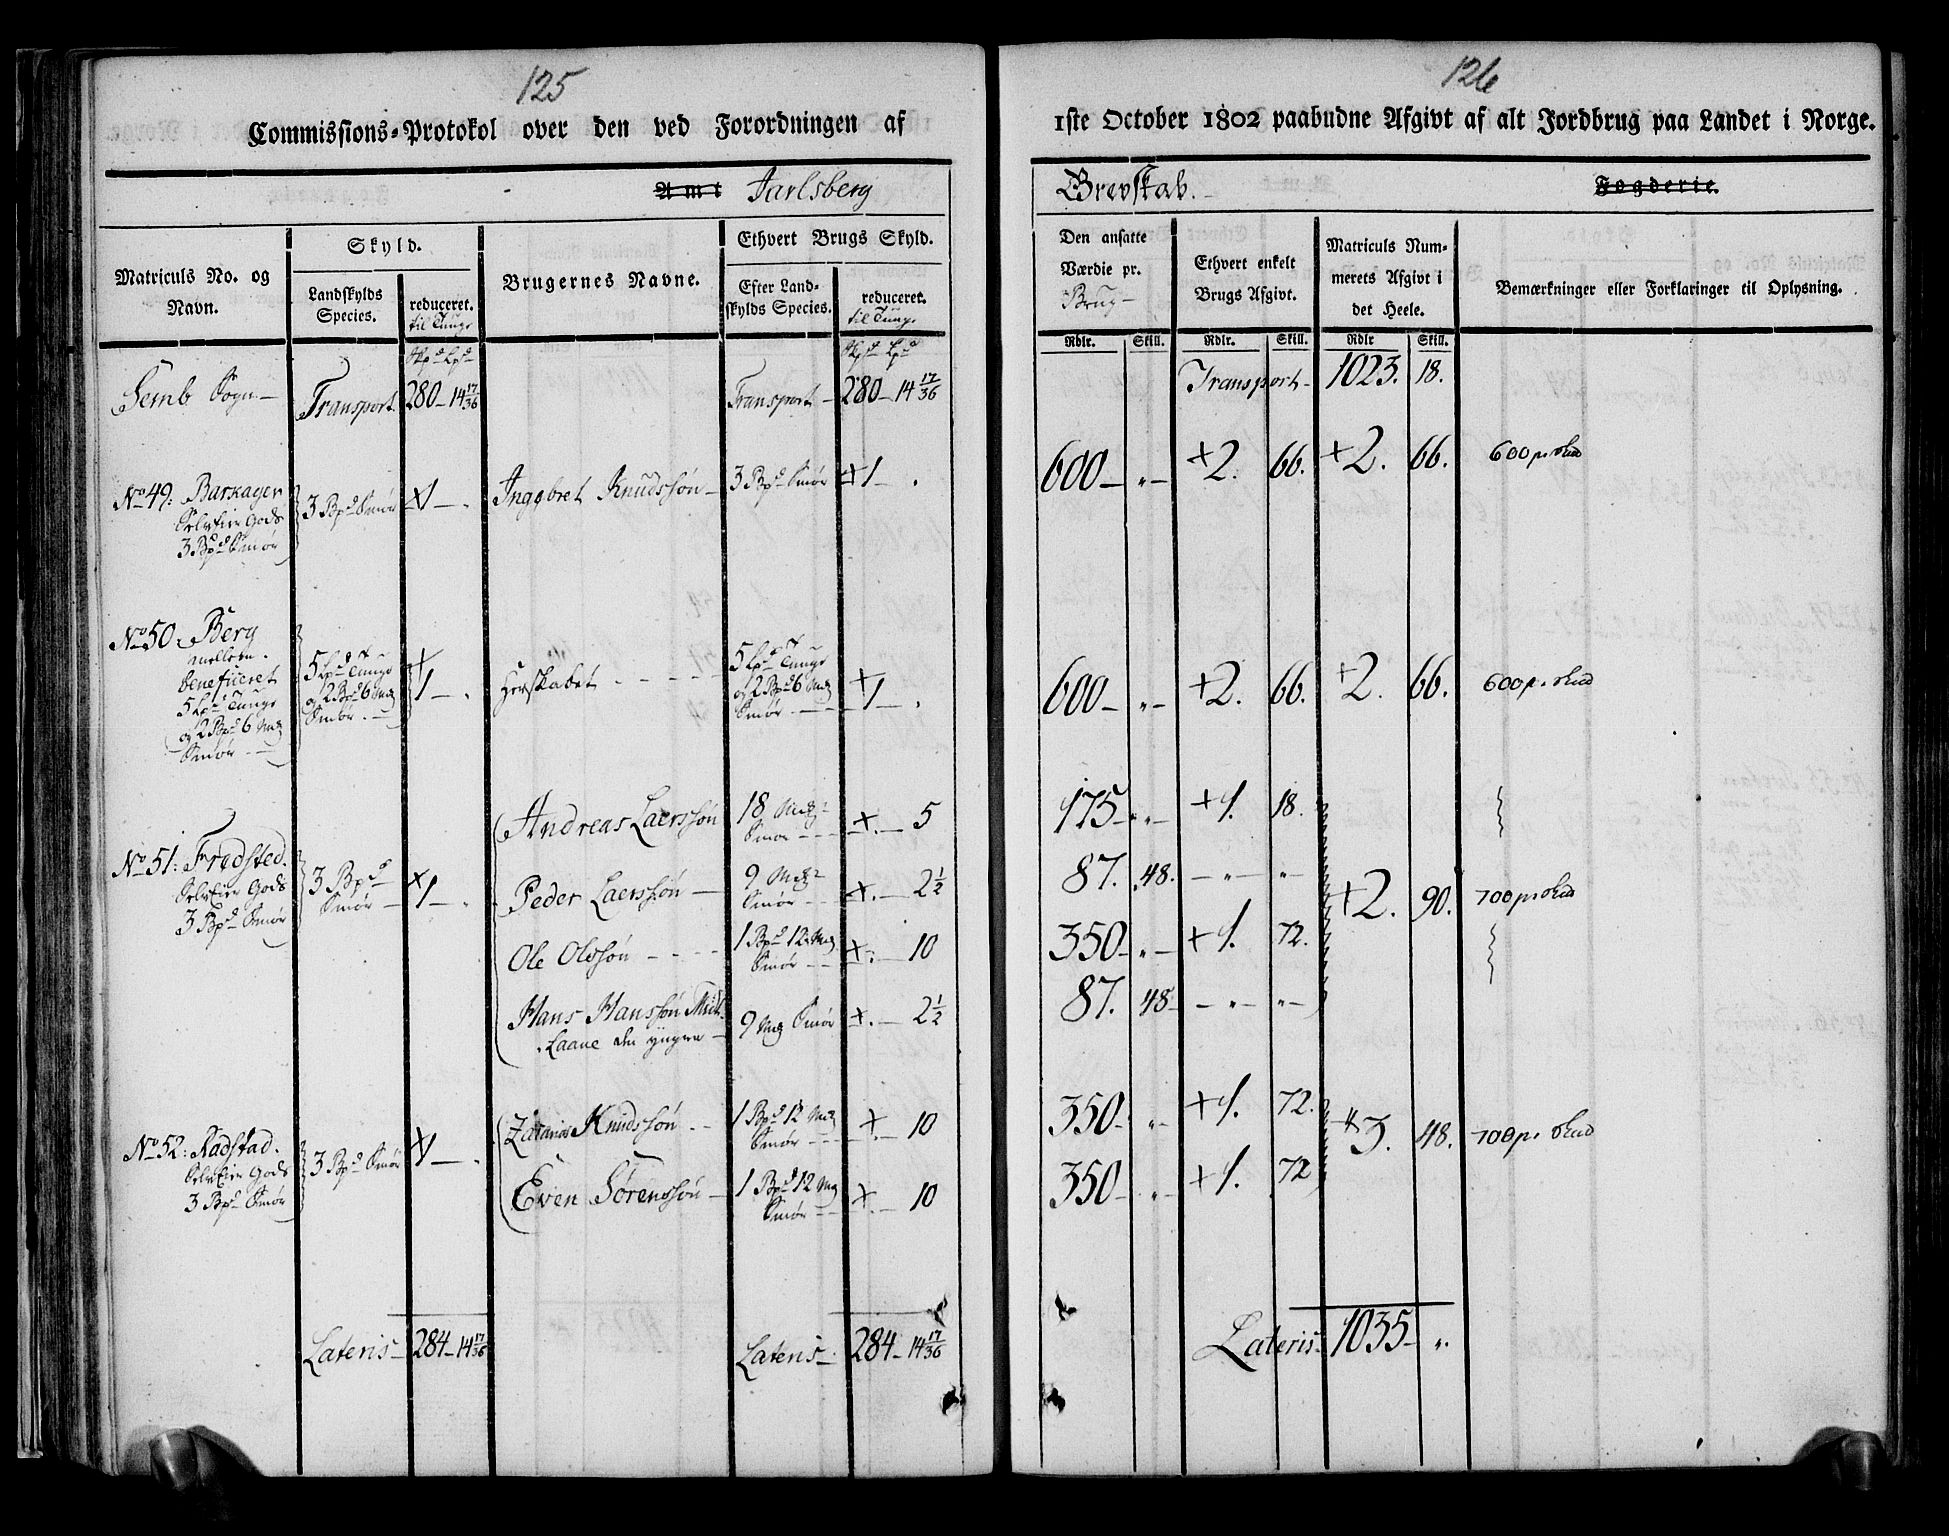 125
Commissions-Protokol over den ved Forordningen af
Amt Jarlsberg
Matriculs No. og Navn.
Skyld.
Landskylds Species.
reduceret. til Tunge
Brugernes Navne.
Ethvert Brugs Skyld.
Efter Landskylds Species.
reduceret. til Tunge
Semb Sogn - Transport 280 - 14 17/36 Transport - 280 - 14 17/36
No 49: Barkager 3 Bpd Smør +1 - . Inggbret Knudssøn - 3 Bpd Smør +1 - .
SelvEier Gods
3 Bpd Smør
No 50. Berg
beneficeret
5 Lpd Tunge
og 2 Bpd 6 Mk
Smør - -
5 Lpd Tunge
og 2 Bpd 6 Mk
Smør - -
+1 - .
Herskabet - - - -
5 Lpd Tunge
og 2 Bpd 6 Mk
Smør - -
+1 - .
No 51: Fredsted.
SelvEier Gods
3 Bpd Smør
3 Bpd
Smør -
+1 - .
Andreas Laerssøn 18 Mk Smør - - +. - 5
Peder Laerssøn - 9 Mk Smør - - +. - 2 1/2
Ole Olssøn - - - - 1 Bpd 12 Mk Smør - - +. - 10
Hans Hanssøn
Laane den yngere - 9 Mk Smør +. - 2 1/2
No 52: Radstad.
SelvEier Gods
3 Bpd Smør
3 Bpd Smør +1 - .
Zacarias Knudssøn - - 1 Bpd 12 Mk Smør - - +. - 10
Even Sørenssøn - 1 Bpd 12 Mk Smør - - +. - 10
Lateris - 284 - 14 17/36 Lateris - 284 - 14 17/36
126
1ste October 1802 paabudne Afgivt af alt Jordbrug paa Landet i Norge.
Grevskab. - Fogderie.
Den ansatte Værdie pr. Brug -
Ethvert enkelt Brugs Afgivt.
Matriculs Nummerets Afgivt i det Heele.
Bemærkninger eller Forklaringer til Oplysning.
Rdlr. Skill. Rdlr. Skill. Rdlr Skill.
Transport - 1023. 18.
600 - " - +2. 66. +2. 66. 600 pr Skud
600 - " - +2. 66. +2. 66. 600 pr. Skud
175 - " - +1. 18.
87. 48. - " - " -
+2. 90. 700 pr Skud
350 - " - +1. 72.
87. 48 - - " - " -
350 - " - +1. 72.
+3. 48. 700 pr Skud
350 - " - +1. 72
Lateris - 1035 - ".